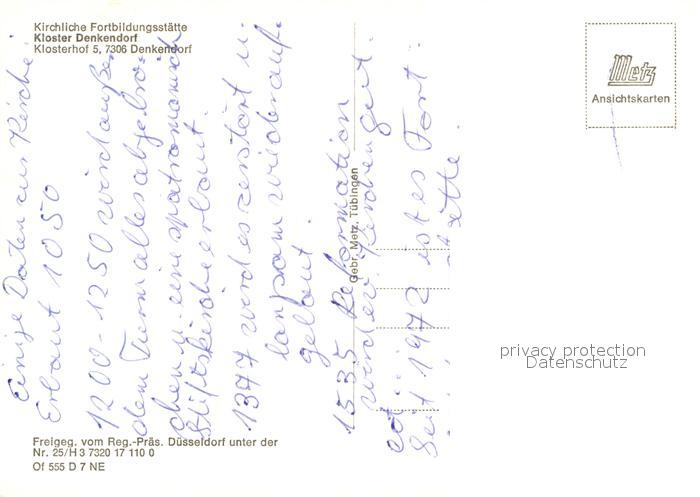 Kirchliche Fortbildungsstätte
Kloster Denkendorf
Klosterhof 5, 7306 Denkendorf
Metz
Ansichtskarten
Einige Daten zur Kirche:
Erbaut 1050
1200-1250 wird außer
dem Turm alles abgebro-
chen u. eine spätromanisch
Stiftskirche erbaut.
1377 wird es zerstört u.
langsam wiederauf-
gebaut.
1535 Reformation
wird ev.
Seit 1972 ist es Fort-
stätte.
Gebr. Metz, Tübingen
privacy protection
Datenschutz
Freigeg. vom Reg.-Präs. Düsseldorf unter der
Nr. 25/H 3 7320 17 110 0
Of 555 D 7 NE